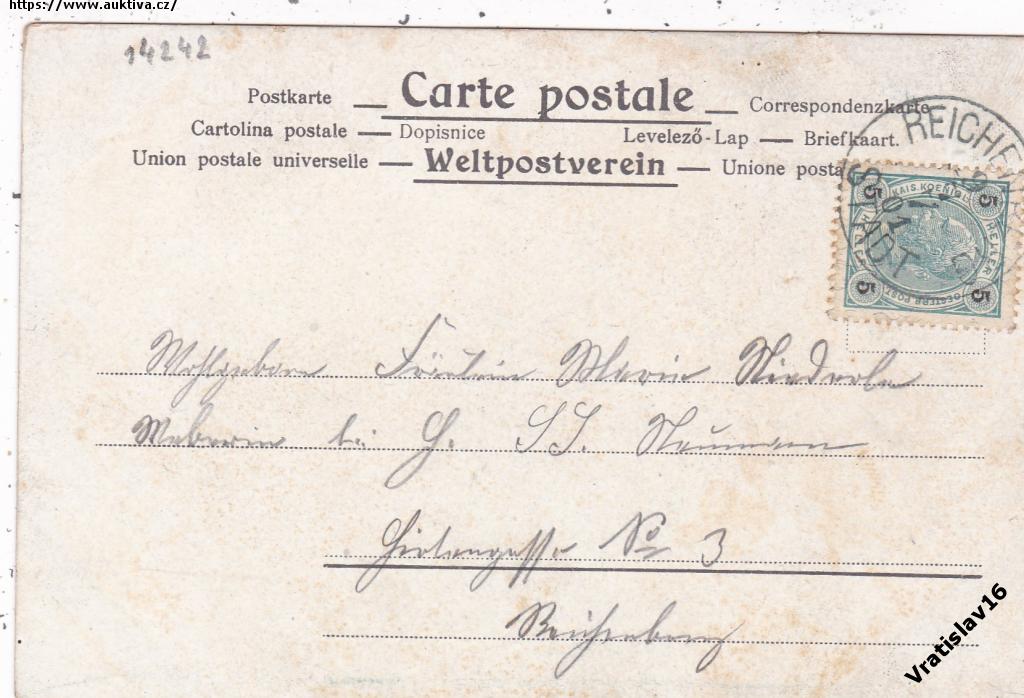 https://www.auktiva.cz/
14242
Postkarte — Carte postale — Correspondenzkarte
Cartolina postale — Dopisnice Levelező-Lap — Briefkaart.
Union postale universelle — Weltpostverein — Unione posta
REICHE
STADT
5 KAIS. KOENIGL. 5
HELLER
5 OESTERR. POST 5
Wohlgeboren Fräulein Marie Niederle
Weberin bei H. S.S. Neumann
Hirtengasse No 3
Reichenberg
Vratislav16